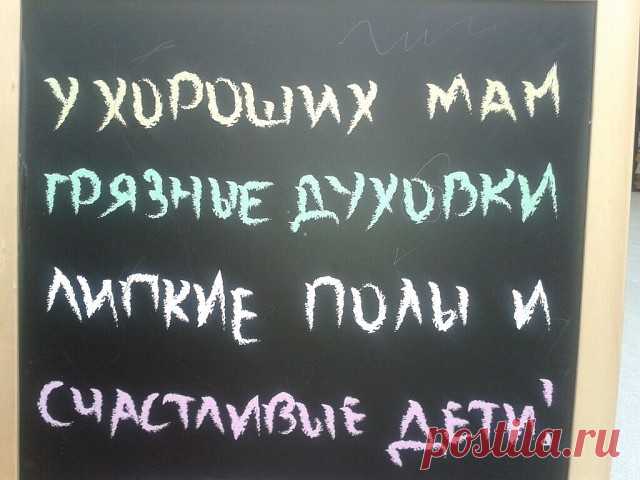 У ХОРОШИХ МАМ
ГРЯЗНЫЕ ДУХОВКИ
ЛИПКИЕ ПОЛЫ И
СЧАСТЛИВЫЕ ДЕТИ!
postila.ru